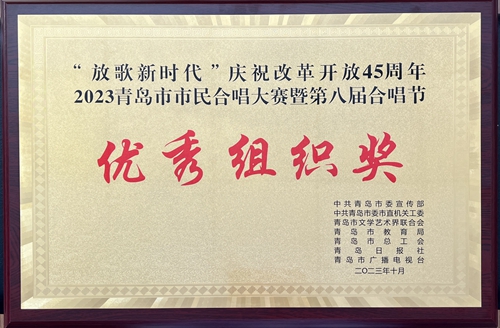 “放歌新时代”庆祝改革开放45周年
2023青岛市市民合唱大赛暨第八届合唱节
优秀组织奖
中共青岛市委宣传部
中共青岛市委市直机关工委
青岛市文学艺术界联合会
青岛市教育局
青岛市总工会
青岛日报社
青岛市广播电视台
二〇二三年十月